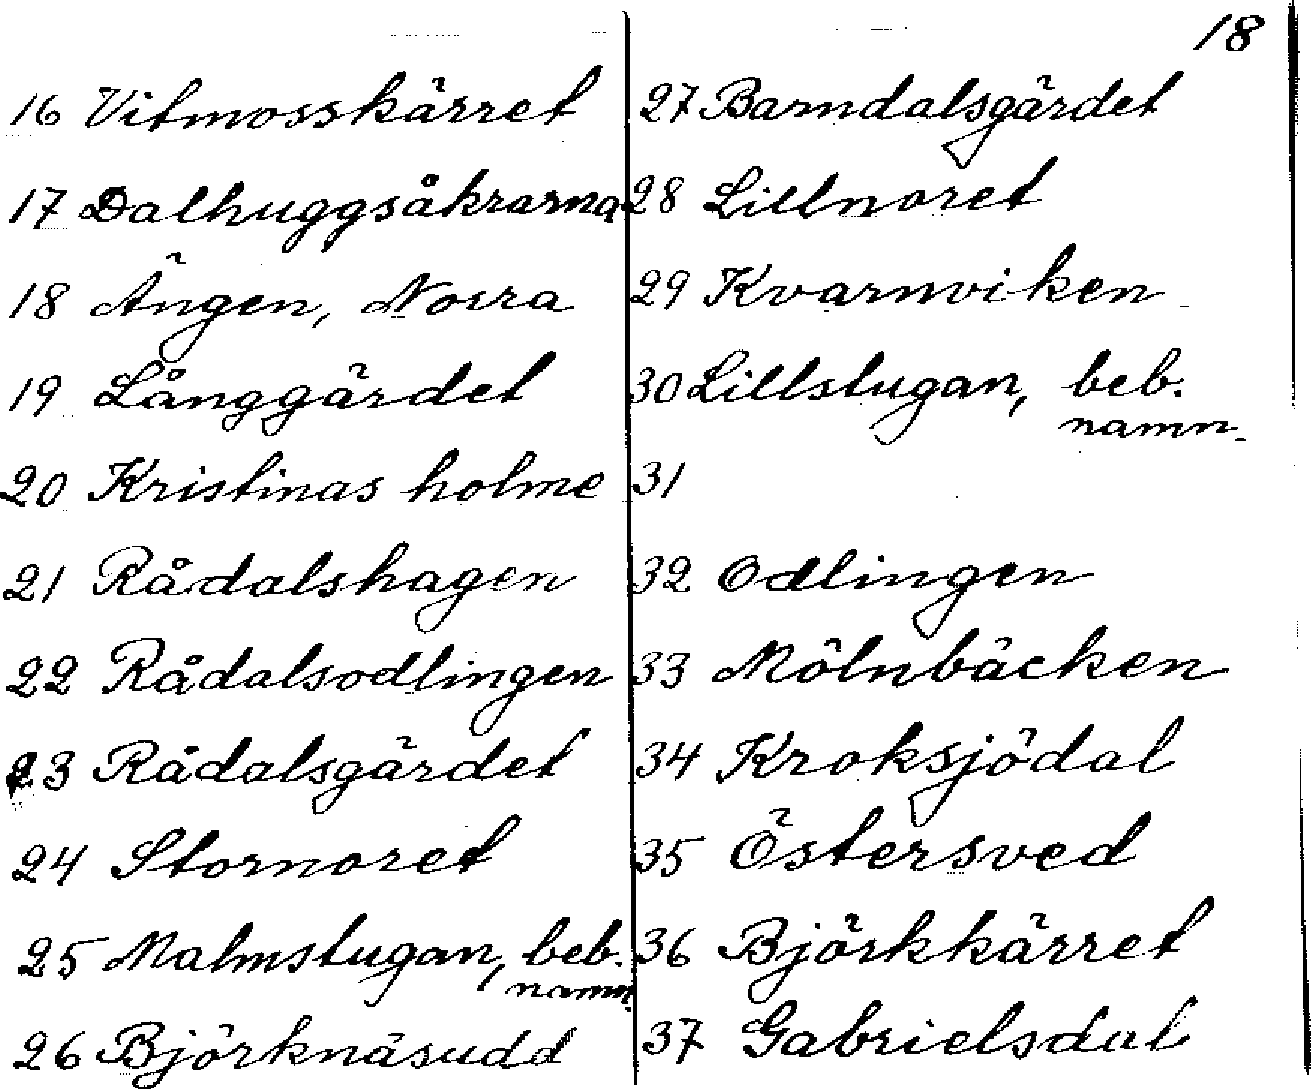 18
16 Vitmosskärret
17 Dalhuggsåkrarna
18 Ängen, Norra
19 Långgärdet
20 Kristinas holme
21 Rådalshagen
22 Rådalsodlingen
23 Rådalsgärdet
24 Stornoret
25 Malmstugan, beb.
namn.
26 Björknäsudd
27 Barndalsgärdet
28 Lillnoret
29 Kvarnviken
30 Lillstugan, beb.
namn.
31
32 Odlingen
33 Mölnbäcken
34 Kroksjödal
35 Östersved
36 Björkkärret
37 Gabrielsdal